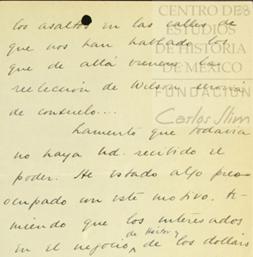 los asaltos en las calles de
que nos han hablado los
que de allá vienen. La
reelección de Wilson
de consuelo...
Lamento que todavía
no haya Ud. recibido el
poder. He estado algo preo-
cupado con este motivo, te-
miendo que los interesados
de Héctor y
en el negocio de los dollars
CENTRO DE
ESTUDIOS
DE HISTORIA
DE MÉXICO
FUNDACIÓN
Carlos Slim